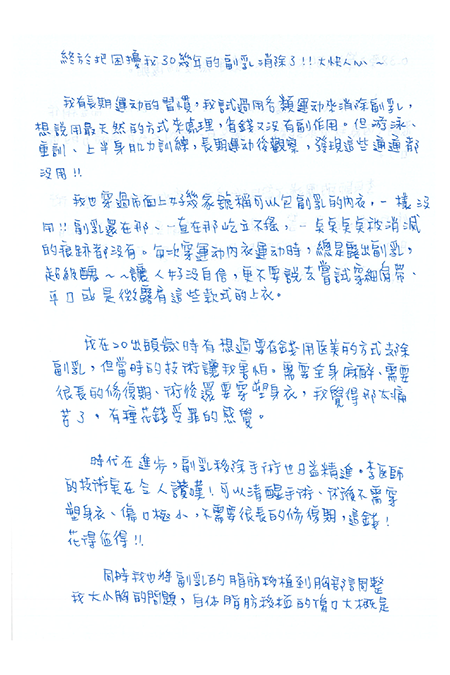 終於把困擾我30幾年的副乳消除了!!大快人心~
我有長期運動的習慣，我試過用各類運動來消除副乳，
想說用最天然的方式來處理，省錢又沒有副作用。但游泳、
重訓、上半身肌力訓練，長期運動後觀察，發現這些通通都
沒用!!
我也穿過市面上好幾家號稱可以包副乳的內衣，一樣沒
用!!副乳還在那、一直在那屹立不搖，一點點點點被消減
的痕跡都沒有。每次穿運動內衣運動時，總是露出副乳，
超級醜~~讓人好沒自信，更不要說去嘗試穿細肩帶、
平口或是微露肩這些款式的上衣。
我在20出頭歲時有想過要存錢用醫美的方式去除
副乳，但當時的技術讓我害怕。需要全身麻醉、需要
很長的修復期、術後還要穿塑身衣，我覺得那太痛
苦了。有種花錢受罪的感覺。
時代在進步，副乳移除手術也日益精進。李醫師
的技術實在令人讚嘆!可以清醒手術、術後不需穿
塑身衣、傷口極小，不需要很長的修復期，這錢!
花得值得!!
同時我也將副乳的脂肪移植到胸部調整
我大小胸的問題，自体脂肪移植的傷口大概是